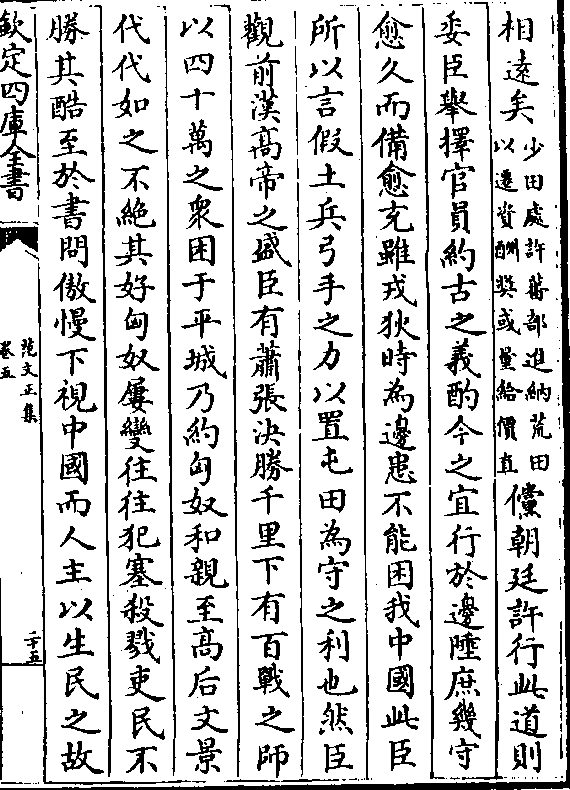 相遠矣少田處許蕃部進納荒田以遷資酬奬或量給價直儻朝廷許行此道則
委臣舉擇官員約古之義酌今之宜行於邊陲庶幾守
愈久而備愈充雖戎狄時為邊患不能困我中國此臣
所以言假土兵弓手之力以置屯田為守之利也然臣
觀前漢髙帝之盛臣有蕭張決勝千里下有百戰之師
以四十萬之衆困于平城乃約匈奴和親至髙后文景
代代如之不絶其好匈奴屢變往往犯塞殺戮吏民不
勝其酷至於書問傲慢下視中國而人主以生民之故
欽定四庫全書
范文正集
卷五
二十五